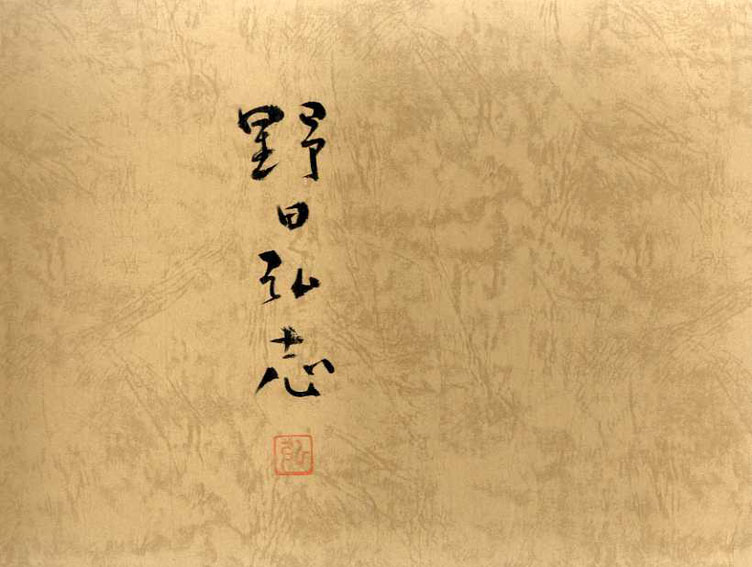 野田弘志
弘